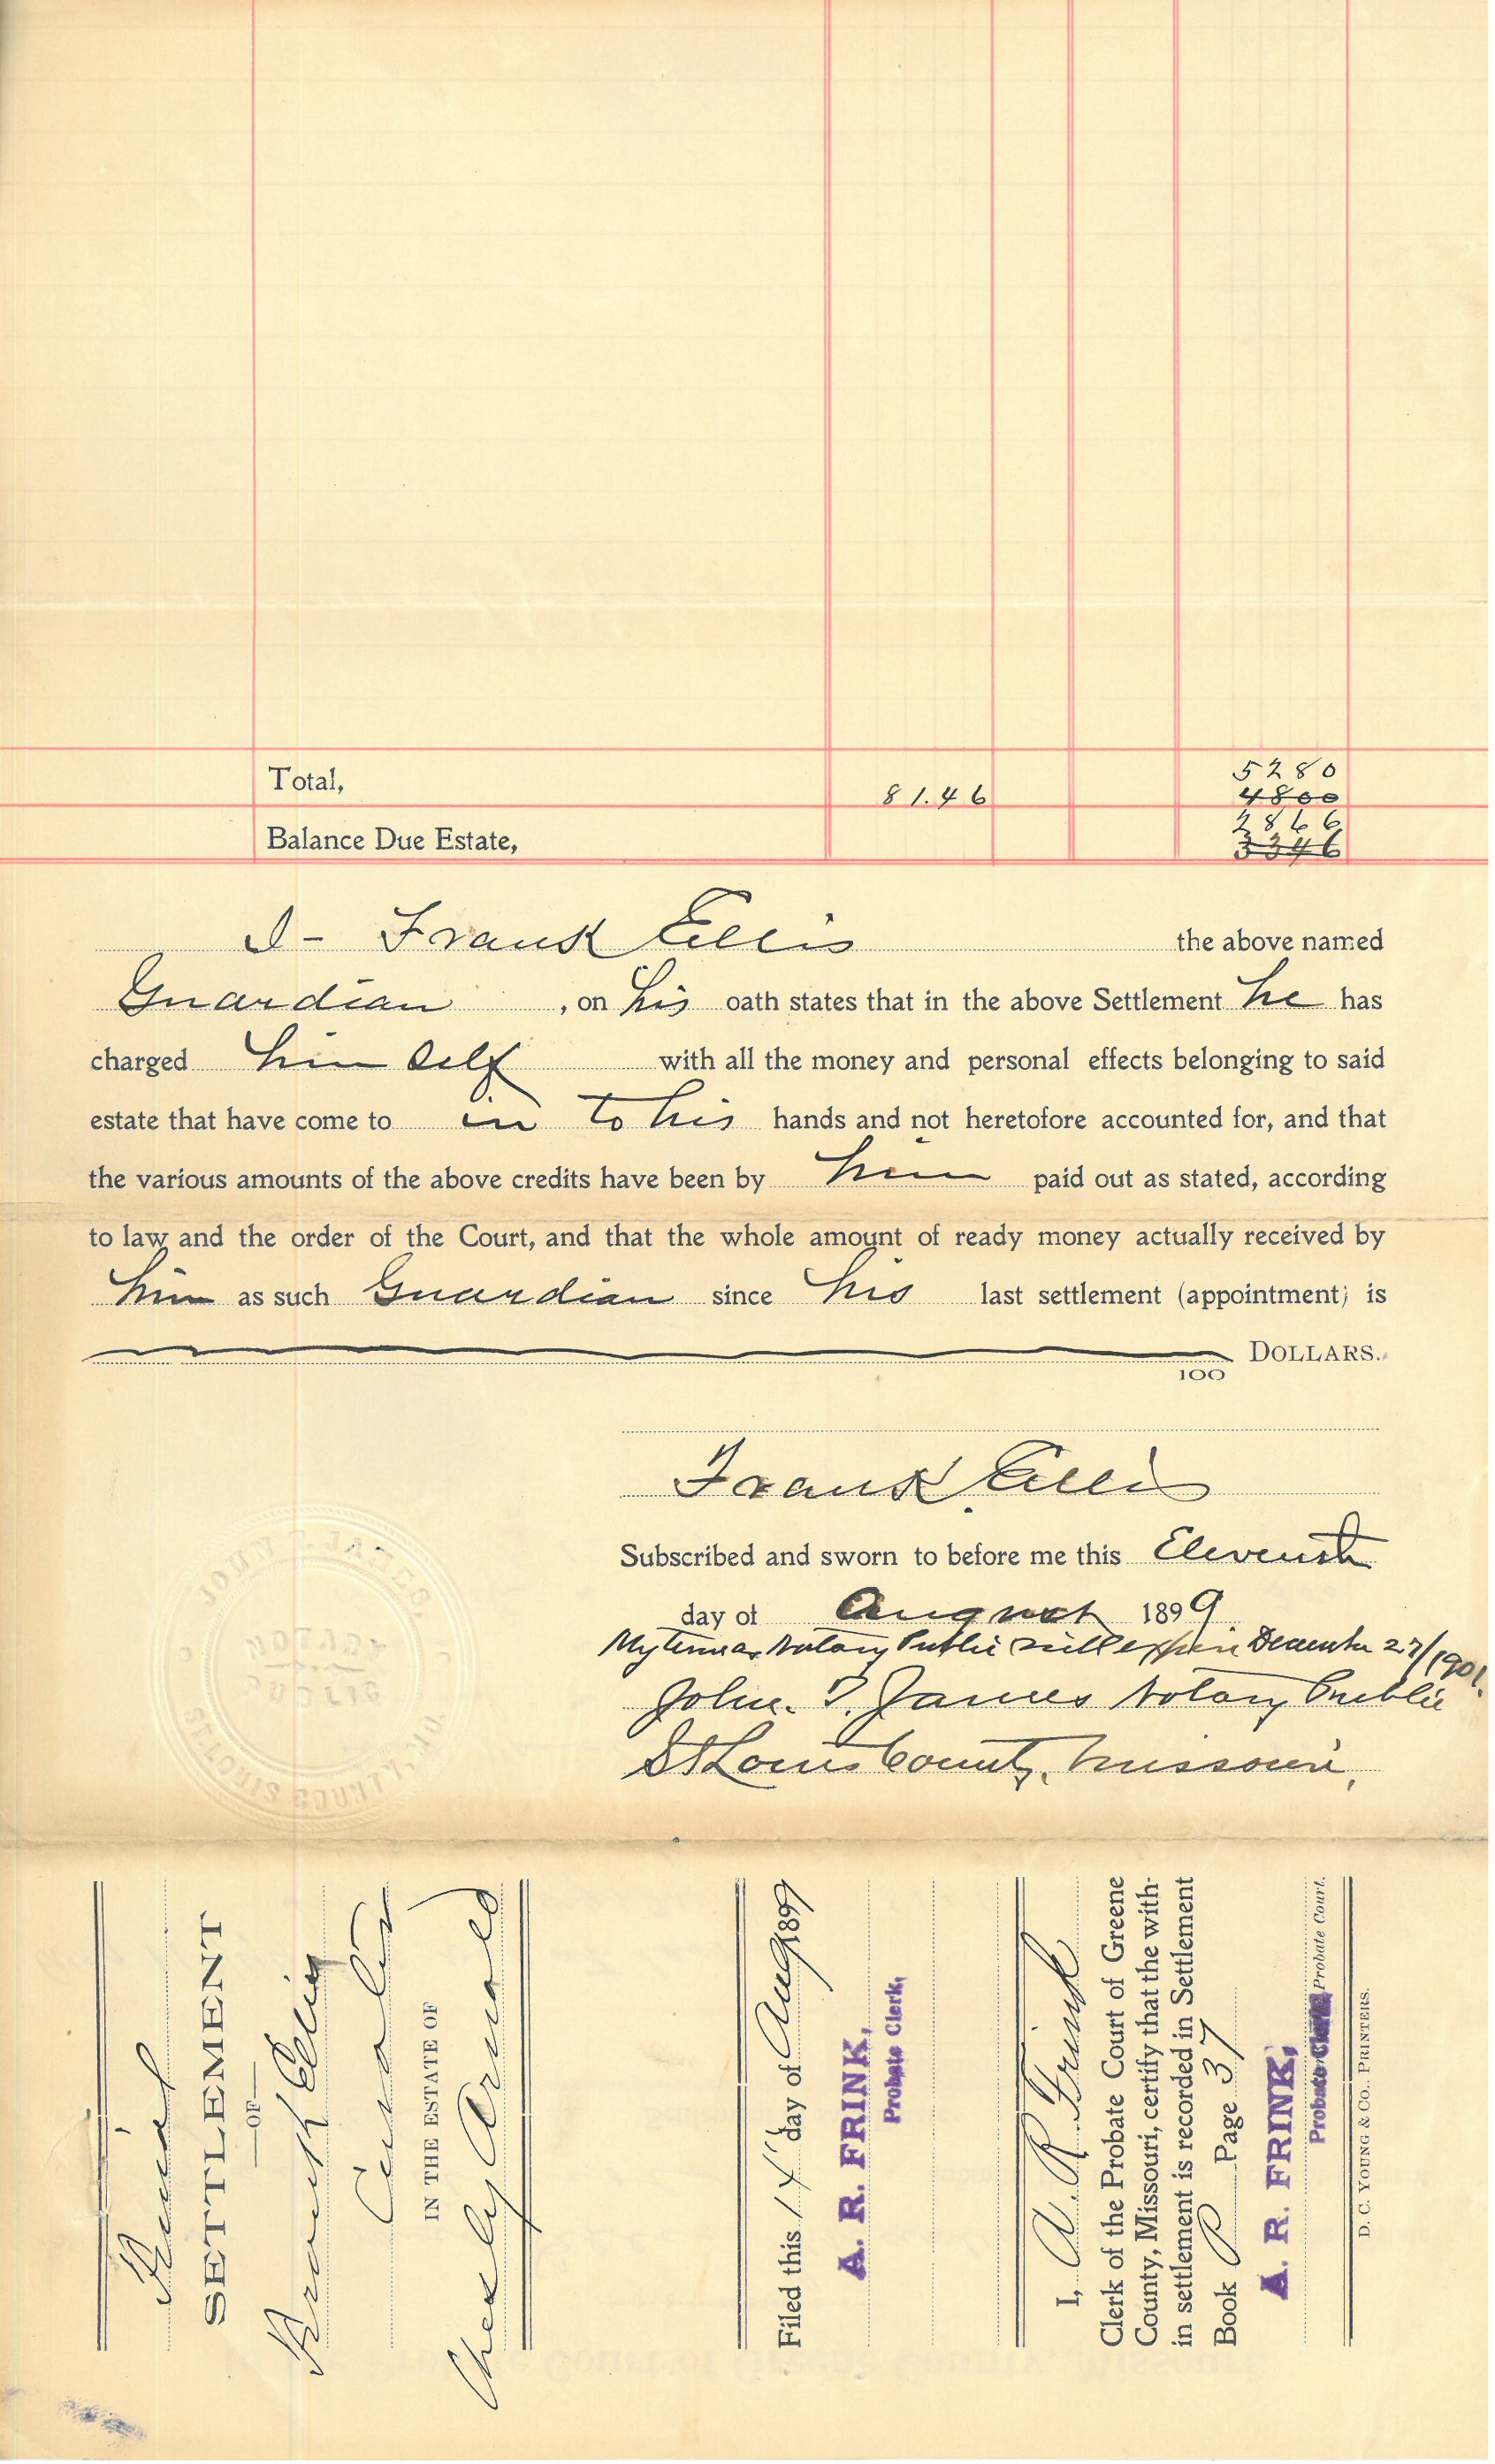 Total, 81.46 5280
4800
2866
Balance Due Estate, 3346
I - Frank Ellis the above named
Guardian , on his oath states that in the above Settlement he has
charged him self with all the money and personal effects belonging to said
estate that have come to in to his hands and not heretofore accounted for, and that
the various amounts of the above credits have been by him paid out as stated, according
to law and the order of the Court, and that the whole amount of ready money actually received by
him as such Guardian since his last settlement (appointment) is
DOLLARS.
100
Frank Ellis
Subscribed and sworn to before me this Eleventh
day of August 1899
My term as Notary Public will expire December 27/1901.
John. T. James Notary Public
St Louis County, Missouri,
JOHN T. JAMES,
NOTARY
PUBLIC
ST LOUIS COUNTY, MO.
Final
SETTLEMENT
—OF—
Frank Ellis
Curator
IN THE ESTATE OF
Chesley Arnold
Filed this 14" day of Aug 1899
A. R. FRINK,
Probate Clerk,
I, A. R. Frink
Clerk of the Probate Court of Greene
County, Missouri, certify that the with-
in settlement is recorded in Settlement
Book P Page 37
A. R. FRINK,
Probate Clerk, Probate Court.
D. C. YOUNG & CO., PRINTERS.